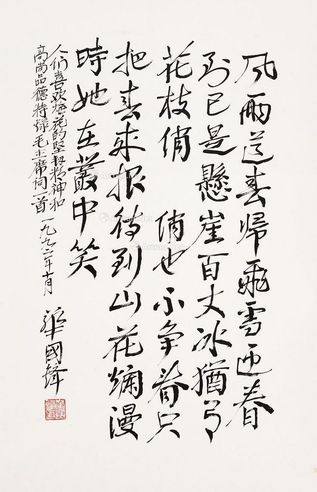 风雨送春歸飛雪迎春
到已是懸崖百丈冰猶有
花枝俏 俏也不争春只
把春来报待到山花爛漫
時她在叢中笑
人们喜欢梅花的坚毅精神和
高尚品德特录毛主席词一首 一九九二年十月
華國鋒